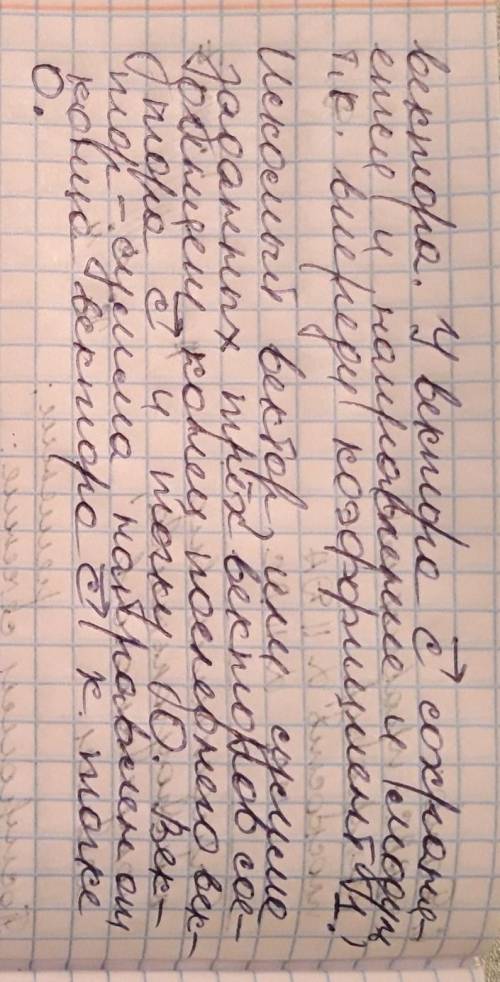 вектора. У вектора c⃗ сохраня-
ется и направление и модуль
т.к. впереди коэффициент 1.
Искомый вектор или сумма
заданных трёх векторов сое-
диняем конец последнего век-
тора c⃗ и точку O. Век-
тор-сумма направлен от
конца вектора c⃗ к точке
O.